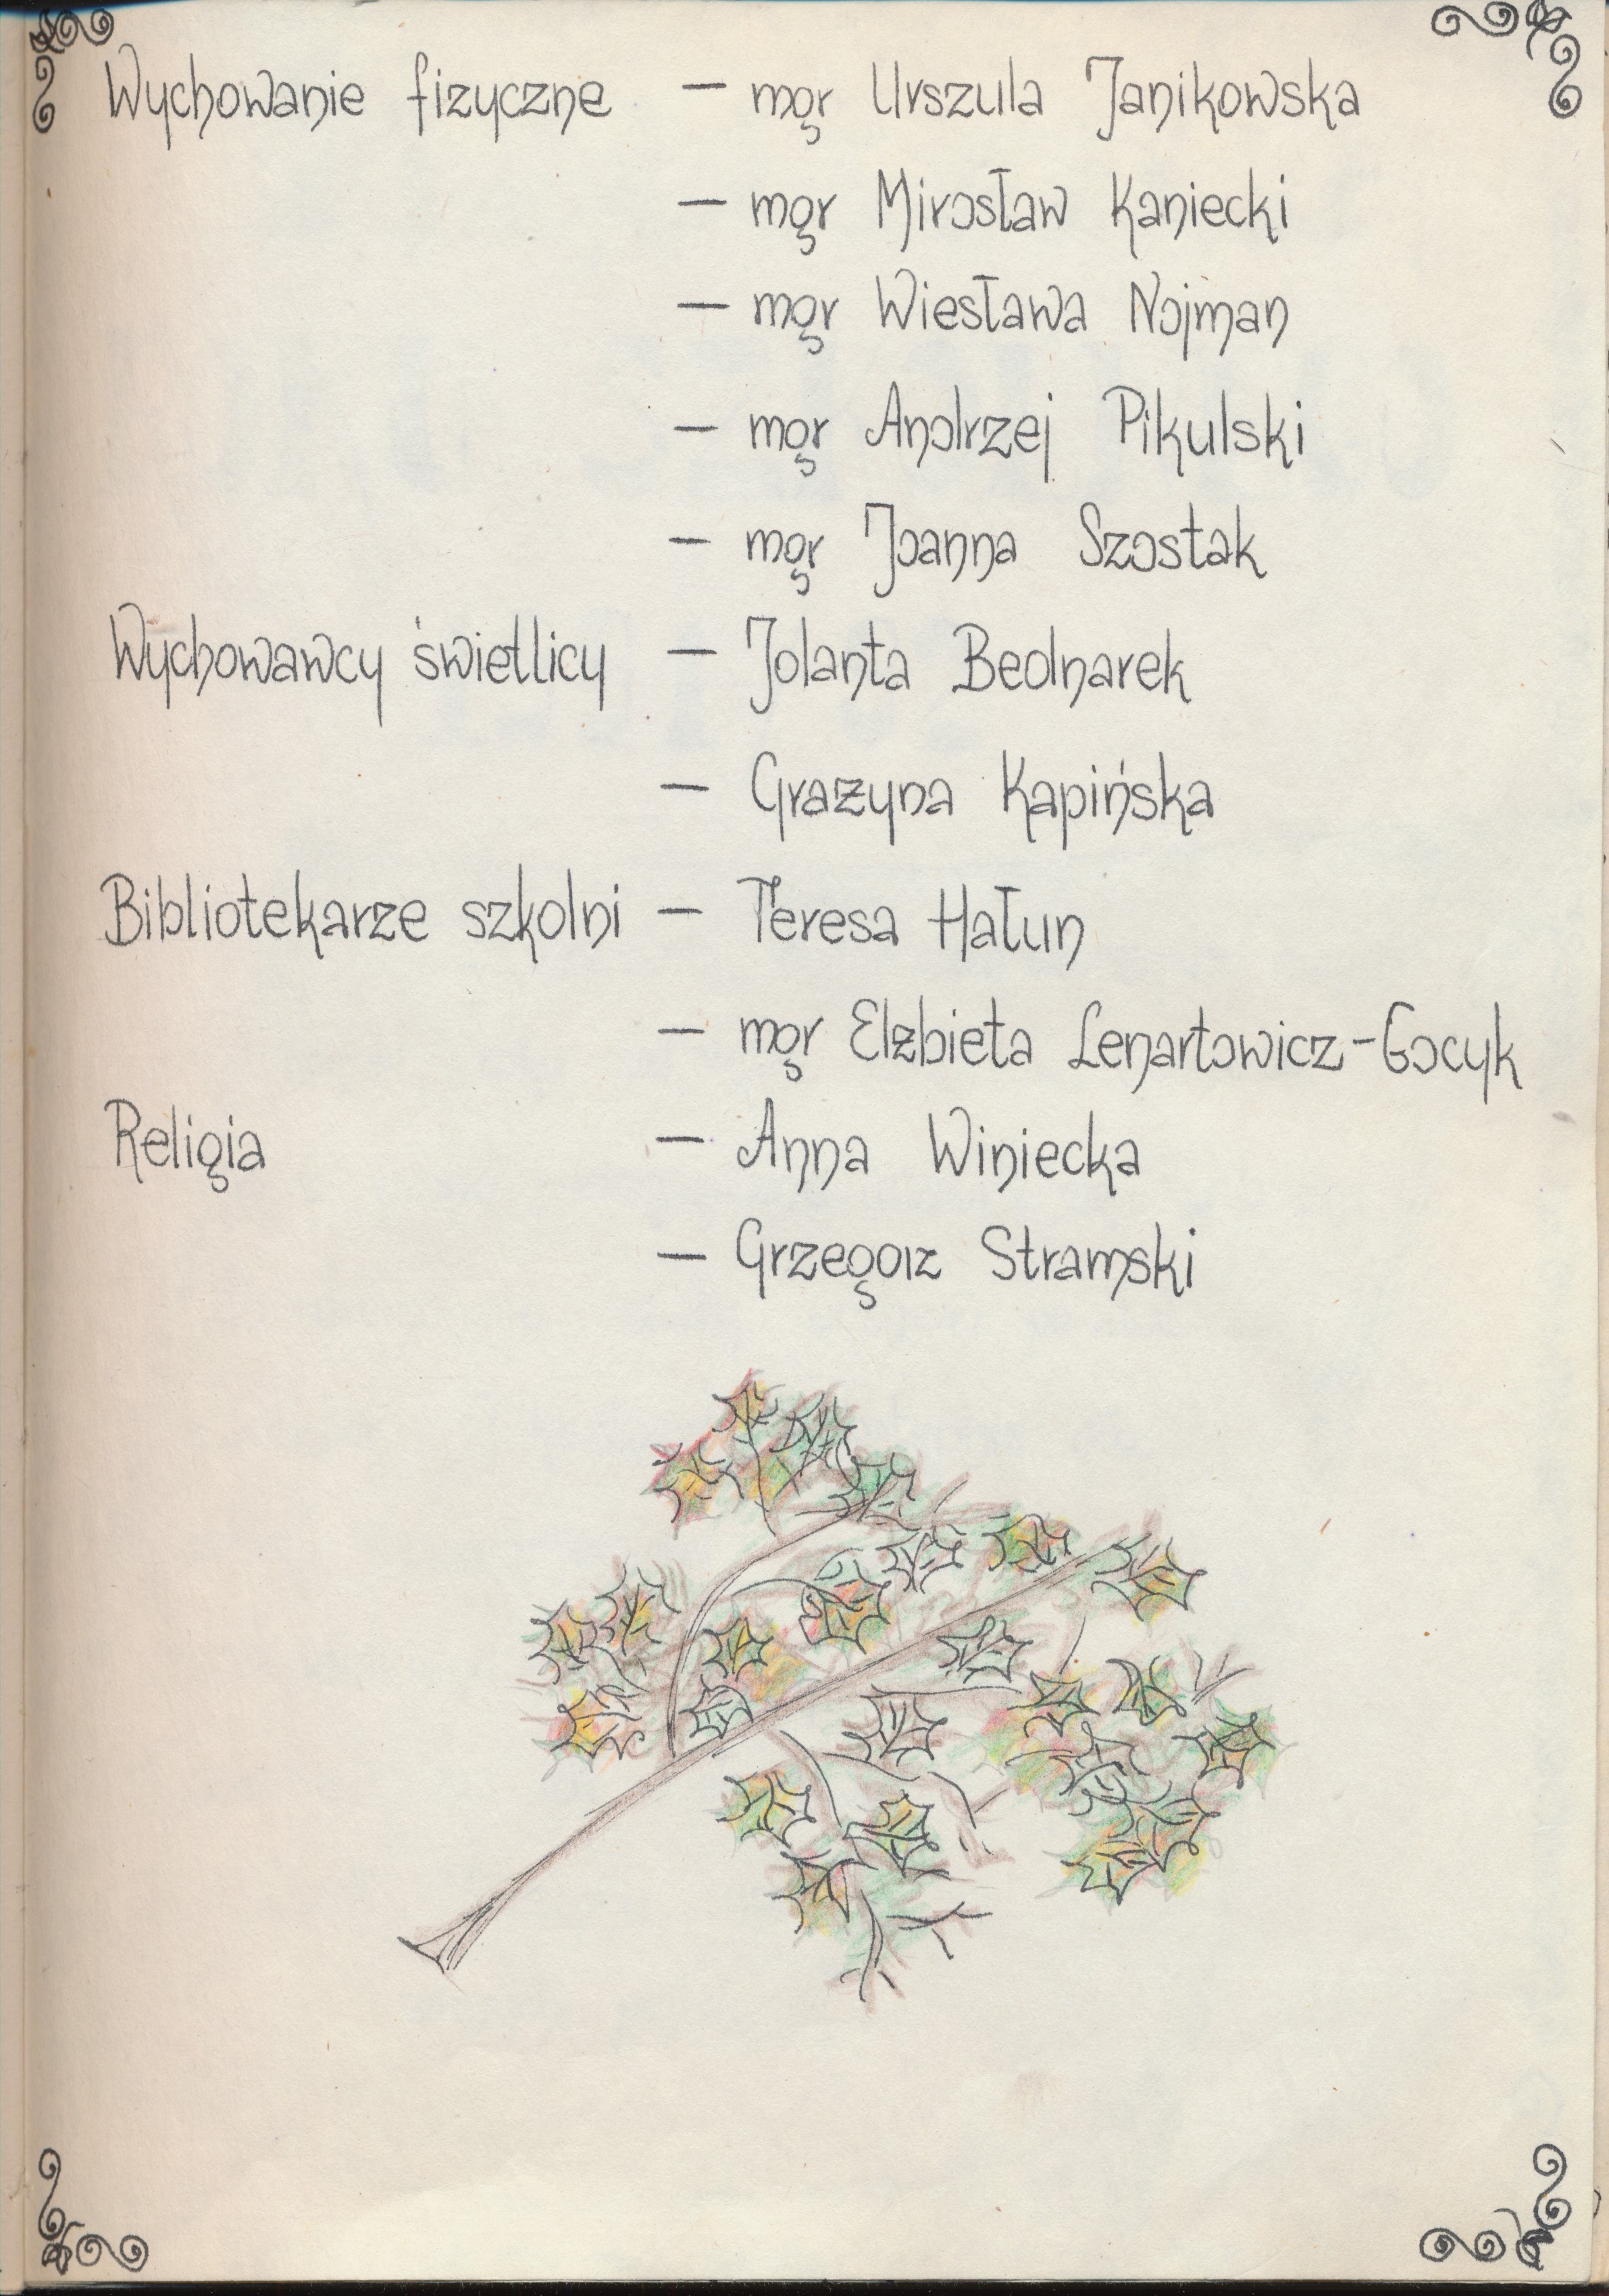 Wychowanie fizyczne – mgr Urszula Janikowska
– mgr Mirosław Kaniecki
– mgr Wiesława Nojman
– mgr Andrzej Pikulski
– mgr Joanna Szostak
Wychowawcy świetlicy – Jolanta Bednarek
– Grażyna Kapińska
Bibliotekarze szkolni – Teresa Hałun
– mgr Elżbieta Lenartowicz-Gocyk
Religia – Anna Winiecka
– Grzegorz Stramski